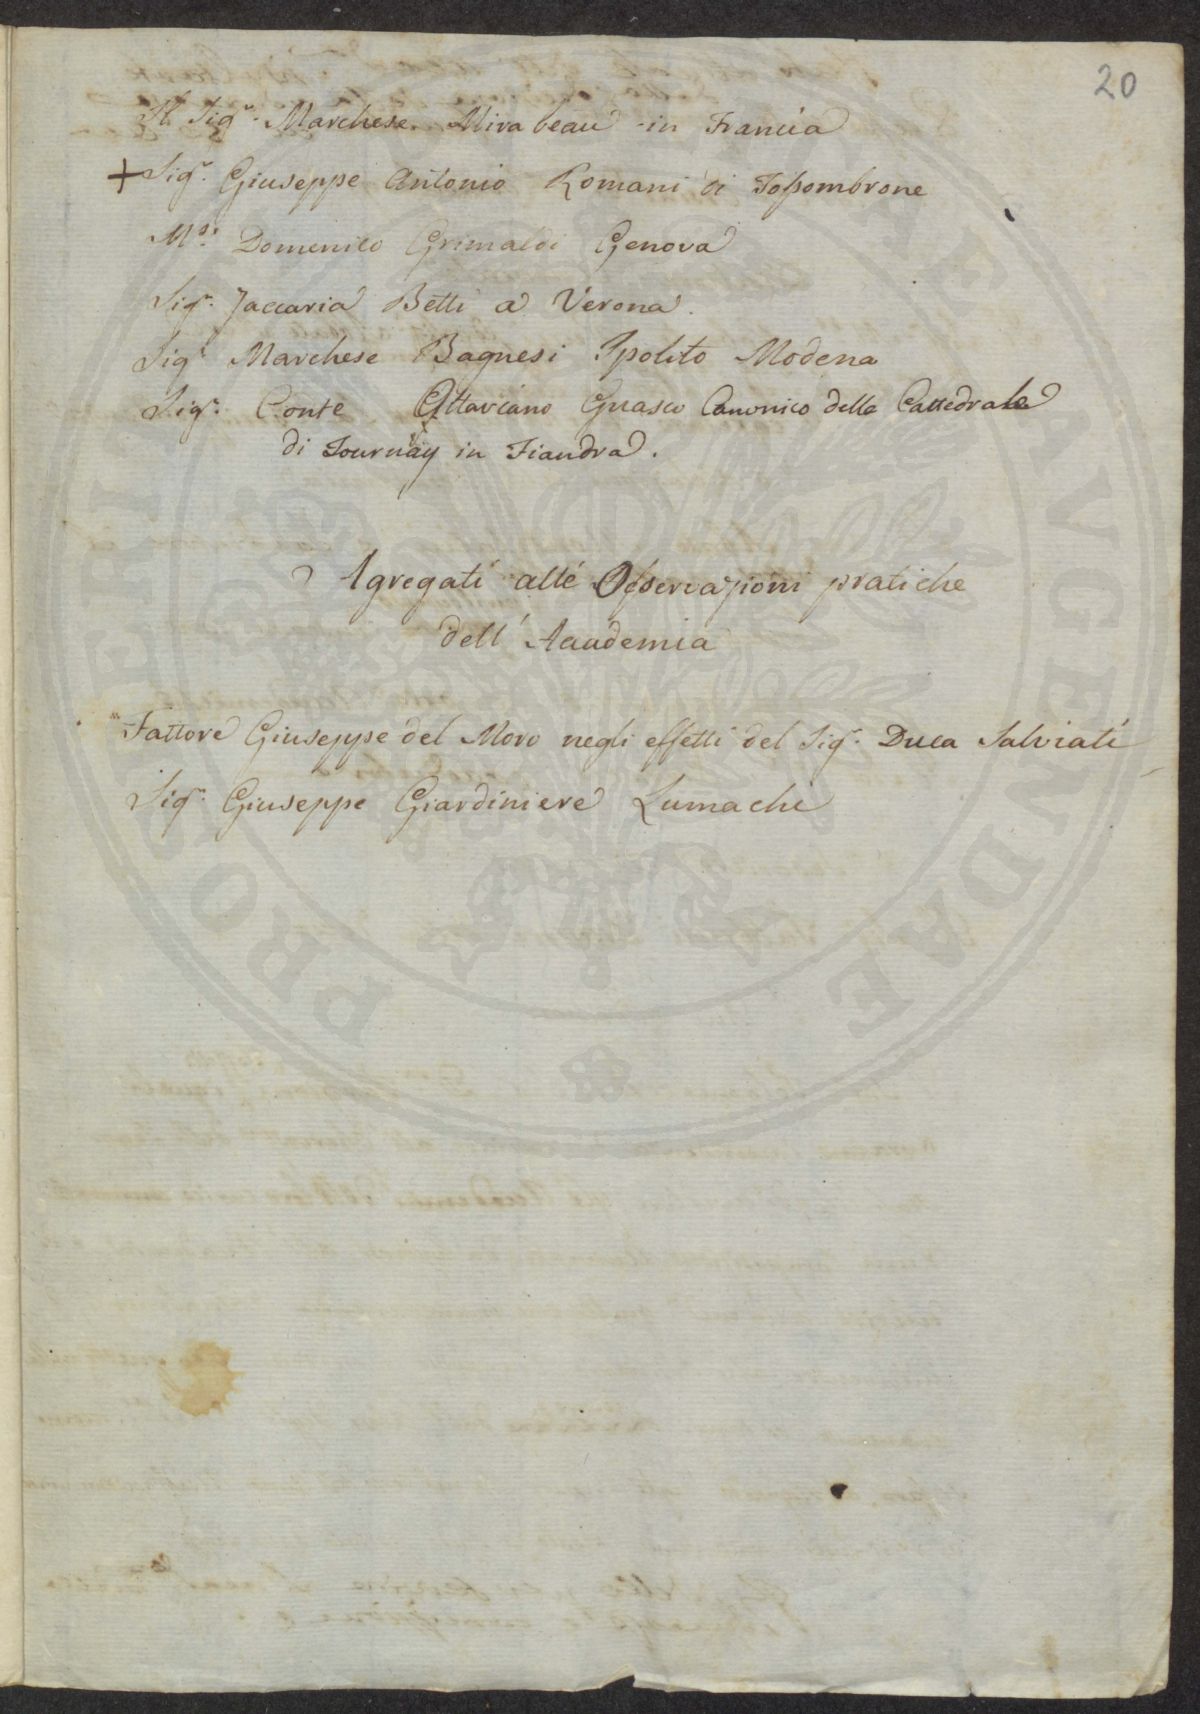 20
Il Sigr. Marchese Mirabeau in Francia
+ Sigr. Giuseppe Antonio Romani di Fossombrone
Ms: Domenico Grimaldi Genova
Sigr. Zaccaria Betti a Verona.
Sigr Marchese Bagnesi Ipolito Modena
Sigr. Conte Ottaviano Guasco Canonico della Cattedrale
di Tournay in Fiandra.
Agregati alle Osservazioni pratiche
dell' Accademia
Fattore Giuseppe del Moro negli effetti del Sigr. Duca Salviati
Sigr. Giuseppe Giardiniere Lumachi
PROSPERITATI PUBLICAE AUGENDAE